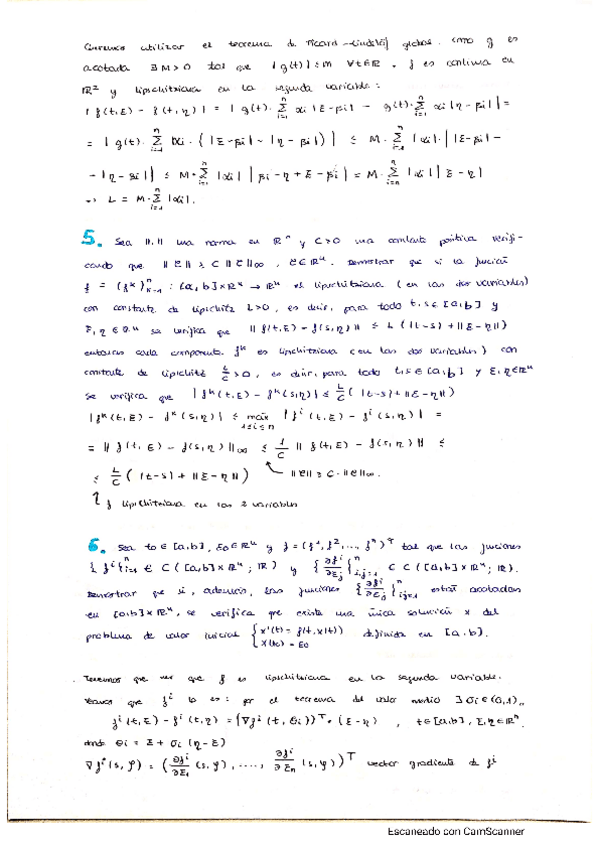 Queremos utilizar el teorema de Picard-Lindelöf global. Como g es
acotada ∃ M > 0 tal que |g(t)| ≤ M ∀t∈ℝ. f es continua en
ℝ² y lipschitziana en la segunda variable:
|f(t,ξ) - f(t,η)| = |g(t)·∑ⁿᵢ₌₁ αi|ξ-βi| - g(t)·∑ⁿᵢ₌₁ αi|η-βi|| =
= |g(t)·∑ⁿᵢ₌₁ αi·(|ξ-βi| - |η-βi|)| ≤ M·∑ⁿᵢ₌₁ |αi|·||ξ-βi| -
- |η-βi|| ≤ M·∑ⁿᵢ₌₁ |αi| |βi - η + ξ - βi| = M·∑ⁿᵢ₌₁ |αi| |ξ-η|
⇒ L = M·∑ⁿᵢ₌₁ |αi|.
5. Sea ||·|| una norma en ℝⁿ y C>0 una constante positiva verifi-
cando que ||ξ|| ≥ C ||ξ||∞, ξ∈ℝⁿ. Demostrar que si la función
f = {fᵏ}ⁿₖ₌₁ : [a,b]×ℝⁿ → ℝⁿ es lipschitziana (en las dos variables)
con constante de Lipschitz L>0, es decir, para todo t,s∈[a,b] y
ξ,η∈ℝⁿ se verifica que ||f(t,ξ) - f(s,η)|| ≤ L(|t-s| + ||ξ-η||)
entonces cada componente fᵏ es lipschitziana (en las dos variables) con
constante de Lipschitz L/C >0, es decir, para todo t,s∈[a,b] y ξ,η∈ℝⁿ
se verifica que |fᵏ(t,ξ) - fᵏ(s,η)| ≤ L/C (|t-s| + ||ξ-η||)
|fᵏ(t,ξ) - fᵏ(s,η)| ≤ máx 1≤i≤n |fⁱ(t,ξ) - fⁱ(s,η)| =
= ||f(t,ξ) - f(s,η)||∞ ≤ 1/C ||f(t,ξ) - f(s,η)|| ≤
≤ L/C (|t-s| + ||ξ-η||) ||ξ|| ≥ C·||ξ||∞.
f lipschitziana en las 2 variables
6. Sea t0∈[a,b], ξ0∈ℝⁿ y f = (f¹, f², ..., fⁿ)ᵀ tal que las funciones
{fⁱ}ⁿᵢ₌₁ ⊂ C([a,b]×ℝⁿ; ℝ) y {∂fⁱ/∂ξj}ⁿᵢ,ⱼ₌₁ ⊂ C([a,b]×ℝⁿ; ℝ).
Demostrar que si, además, las funciones {∂fⁱ/∂ξj}ⁿᵢ,ⱼ₌₁ están acotadas
en [a,b]×ℝⁿ, se verifica que existe una única solución x del
problema de valor inicial { x'(t) = f(t,x(t)) x(t0) = ξ0 definida en [a,b].
Tenemos que ver que f es lipschitziana en la segunda variable.
Veamos que fⁱ lo es: por el teorema del valor medio ∃ σi∈(0,1),
fⁱ(t,ξ) - fⁱ(t,η) = (∇fⁱ(t,θi))ᵀ·(ξ-η), t∈[a,b], ξ,η∈ℝⁿ.
donde θi = ξ + σi(η-ξ)
∇fⁱ(s,φ) = (∂fⁱ/∂ξ1 (s,φ), ..., ∂fⁱ/∂ξn (s,φ))ᵀ vector gradiente de fⁱ
Escaneado con CamScanner